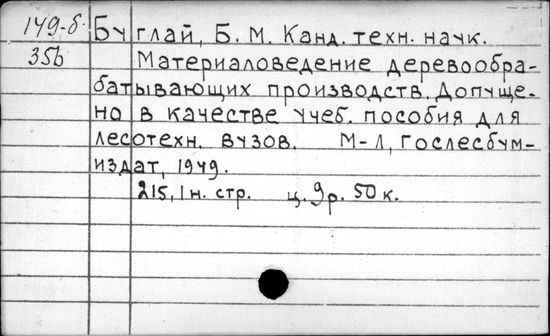 149-б. Буглай, Б. М. Канд. техн. наук.
356 Материаловедение деревообра-
батывающих производств. Допуще-
но в качестве учеб. пособия для
лесотехн. вузов. М-Л, Гослесбум-
издат, 1949.
215, 1 н. стр. ц. 9 р. 50 к.